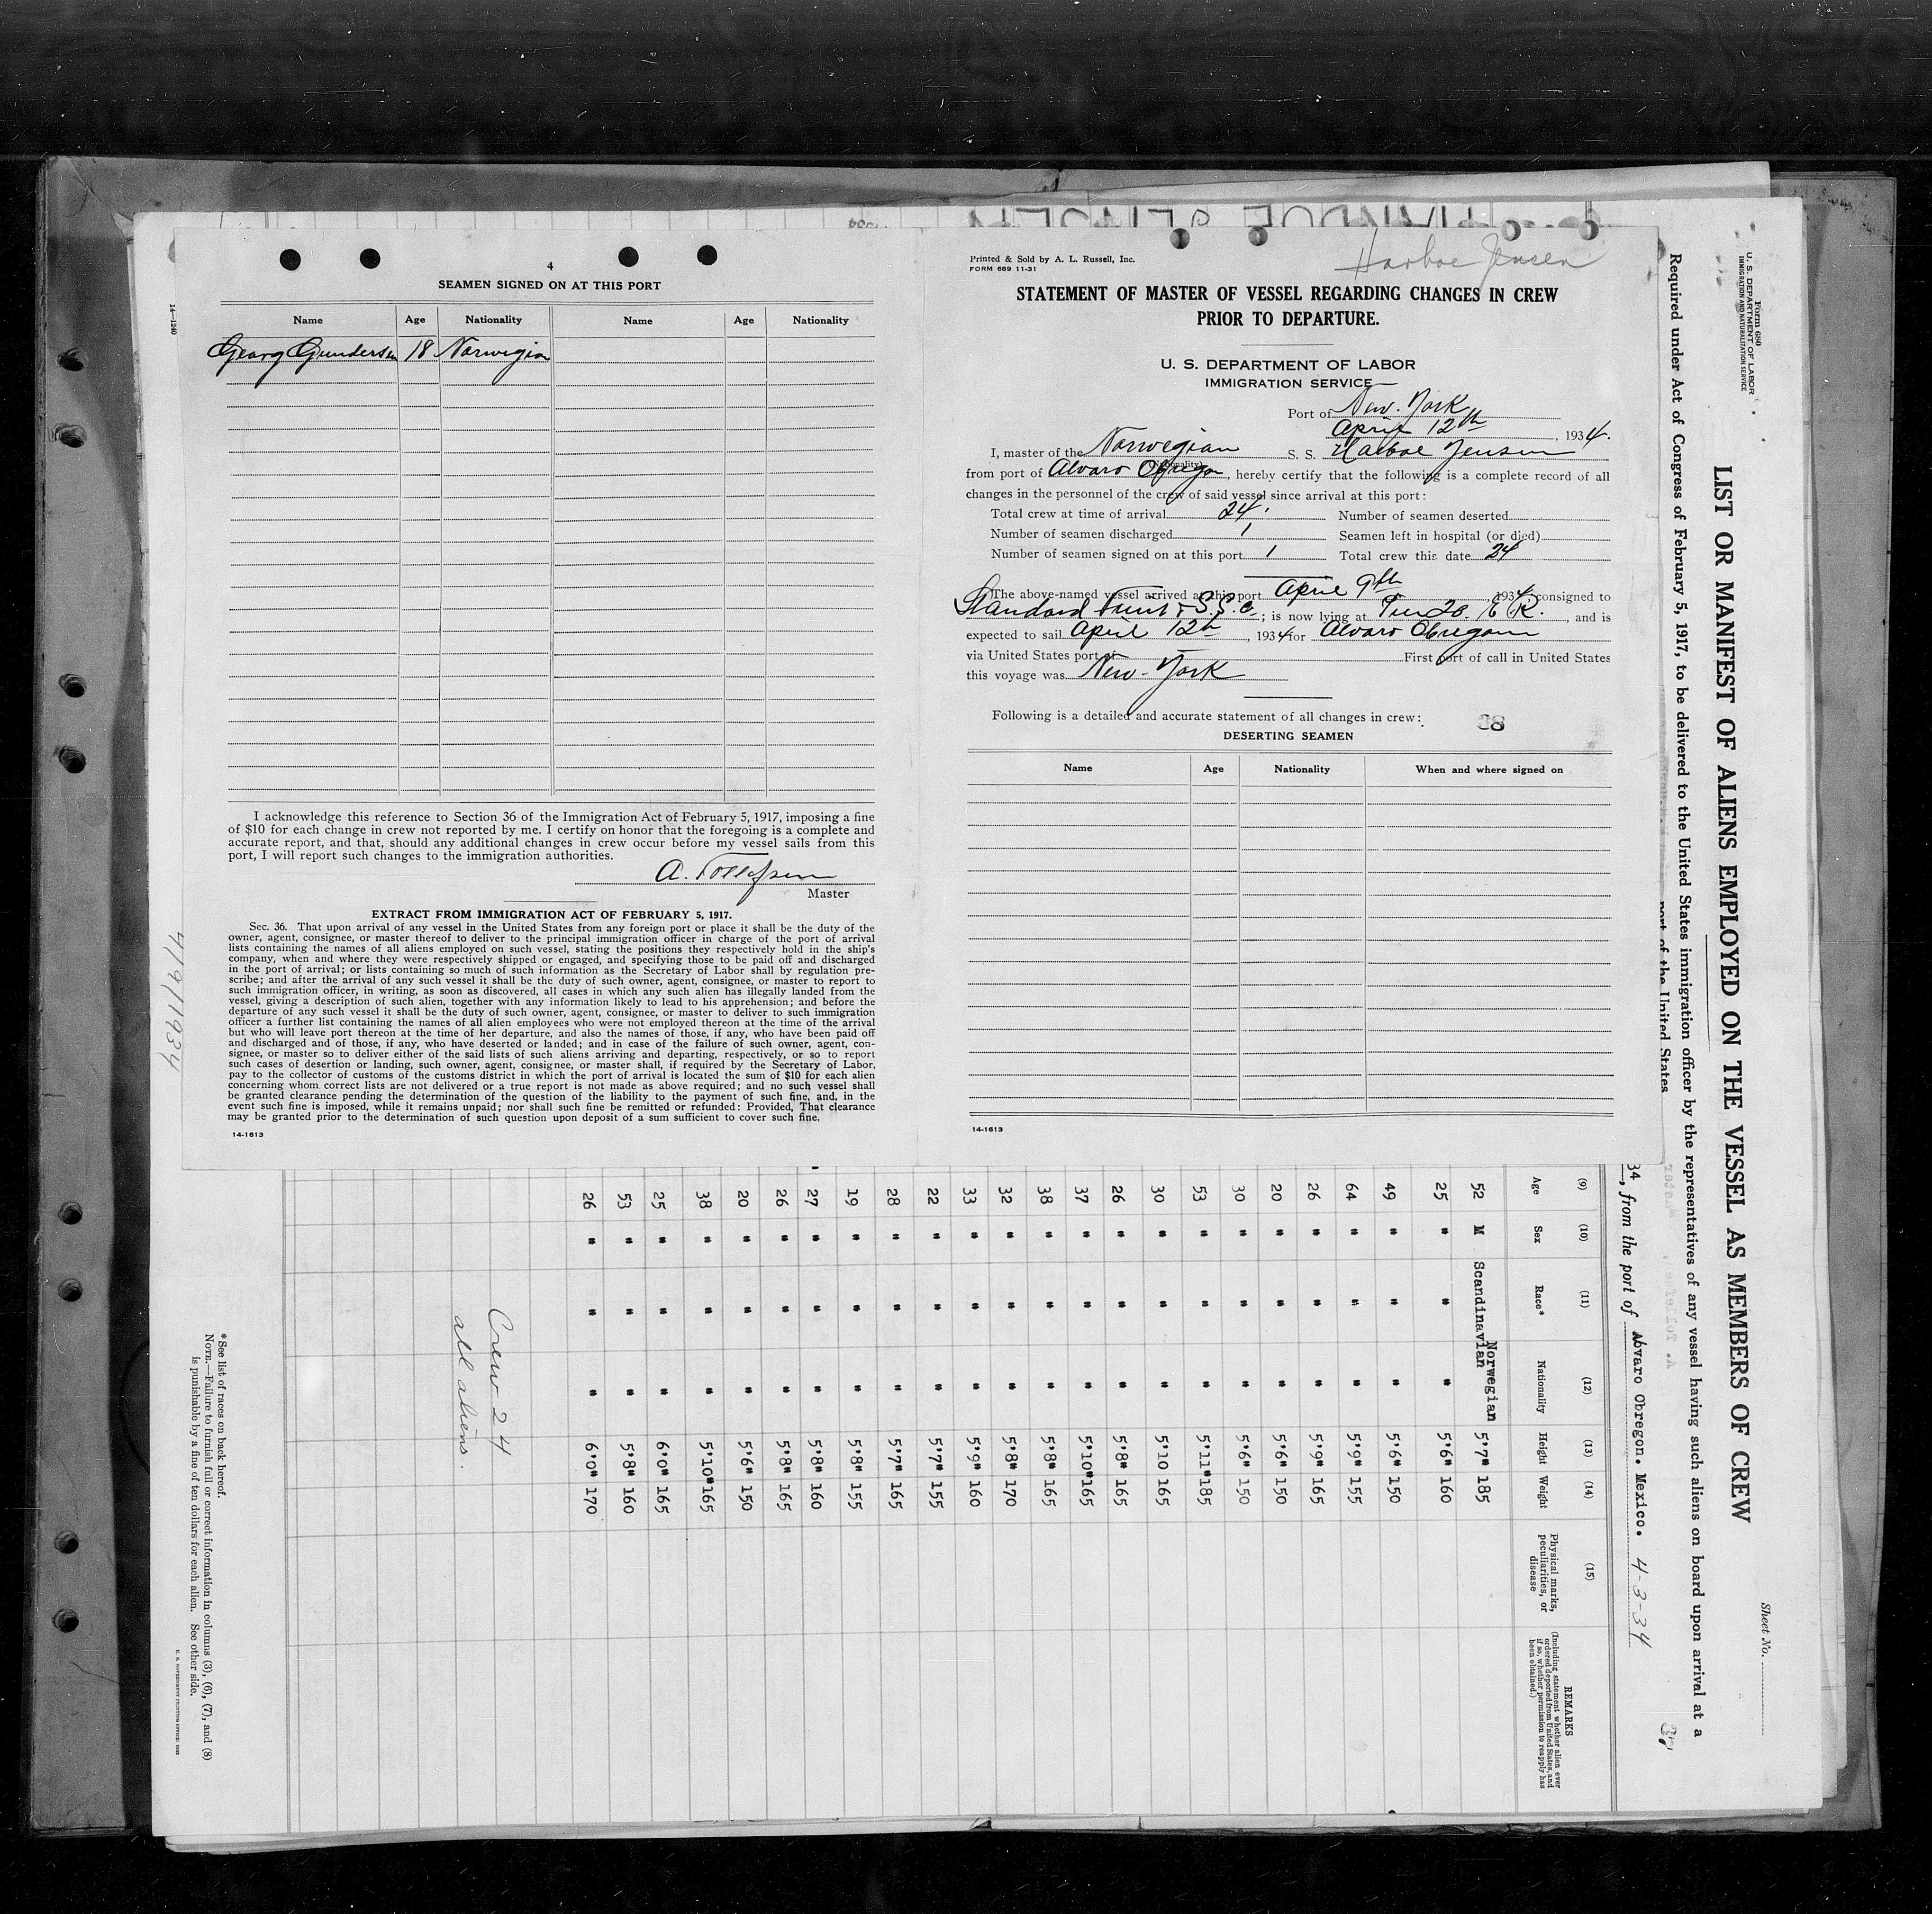 4
SEAMEN SIGNED ON AT THIS PORT
14—1240
Name Age Nationality Name Age Nationality
Georg Gundersen 18 Norwegian
I acknowledge this reference to Section 36 of the Immigration Act of February 5, 1917, imposing a fine
of $10 for each change in crew not reported by me. I certify on honor that the foregoing is a complete and
accurate report, and that, should any additional changes in crew occur before my vessel sails from this
port, I will report such changes to the immigration authorities.
A. Tollefsen
Master
EXTRACT FROM IMMIGRATION ACT OF FEBRUARY 5, 1917.
Sec. 36. That upon arrival of any vessel in the United States from any foreign port or place it shall be the duty of the
owner, agent, consignee, or master thereof to deliver to the principal immigration officer in charge of the port of arrival
lists containing the names of all aliens employed on such vessel, stating the positions they respectively hold in the ship's
company, when and where they were respectively shipped or engaged, and specifying those to be paid off and discharged
in the port of arrival; or lists containing so much of such information as the Secretary of Labor shall by regulation pre-
scribe; and after the arrival of any such vessel it shall be the duty of such owner, agent, consignee, or master to report to
such immigration officer, in writing, as soon as discovered, all cases in which any such alien has illegally landed from the
vessel, giving a description of such alien, together with any information likely to lead to his apprehension; and before the
departure of any such vessel it shall be the duty of such owner, agent, consignee, or master to deliver to such immigration
officer a further list containing the names of all alien employees who were not employed thereon at the time of the arrival
but who will leave port thereon at the time of her departure, and also the names of those, if any, who have been paid off
and discharged and of those, if any, who have deserted or landed; and in case of the failure of such owner, agent, con-
signee, or master so to deliver either of the said lists of such aliens arriving and departing, respectively, or so to report
such cases of desertion or landing, such owner, agent, consignee, or master shall, if required by the Secretary of Labor,
pay to the collector of customs of the customs district in which the port of arrival is located the sum of $10 for each alien
concerning whom correct lists are not delivered or a true report is not made as above required; and no such vessel shall
be granted clearance pending the determination of the question of the liability to the payment of such fine, and, in the
event such fine is imposed, while it remains unpaid; nor shall such fine be remitted or refunded: Provided, That clearance
may be granted prior to the determination of such question upon deposit of a sum sufficient to cover such fine.
14-1613
4/9/1934
Harboe Jensen
Printed & Sold by A. L. Russell, Inc.
FORM 689 11-31
STATEMENT OF MASTER OF VESSEL REGARDING CHANGES IN CREW
PRIOR TO DEPARTURE.
U. S. DEPARTMENT OF LABOR
IMMIGRATION SERVICE
Port of New. York
April 12th, 1934.
I, master of the Norwegian S. S. Harboe Jensen
(Nationality)
from port of Alvaro Obregon, hereby certify that the following is a complete record of all
changes in the personnel of the crew of said vessel since arrival at this port:
Total crew at time of arrival 24 Number of seamen deserted
Number of seamen discharged 1 Seamen left in hospital (or died)
Number of seamen signed on at this port 1 Total crew this date 24
The above-named vessel arrived at this port April 9th, 1934, consigned to
Standard Fruit & S.S.C.; is now lying at Pier 20. E.R., and is
expected to sail April 12th, 1934 for Alvaro Obregon
via United States port of First port of call in United States
this voyage was New-York
Following is a detailed and accurate statement of all changes in crew:
38
DESERTING SEAMEN
Name Age Nationality When and where signed on
14-1613
Form 680
U. S. DEPARTMENT OF LABOR
IMMIGRATION AND NATURALIZATION SERVICE
Sheet No.
LIST OR MANIFEST OF ALIENS EMPLOYED ON THE VESSEL AS MEMBERS OF CREW
Required under Act of Congress of February 5, 1917, to be delivered to the United States immigration officer by the representatives of any vessel having such aliens on board upon arrival at a
port of the United States
34, from the port of Alvaro Obregon. Mexico. 4-3-34
(9) (10) (11) (12) (13) (14) (15)
Age Sex Race* Nationality Height Weight Physical marks, peculiarities, or disease REMARKS
(Including statement whether alien ever ordered deported from United States, and if so, whether permission to reapply has been obtained.)
52 M Scandinavian Norwegian 5'7" 185
25 " " " 5'6" 160
49 " " " 5'6" 150
64 " " " 5'9" 155
26 " " " 5'9" 165
20 " " " 5'6" 150
30 " " " 5'6" 150
53 " " " 5'11" 185
30 " " " 5'10 165
26 " " " 5'8" 165
37 " " " 5'10" 165
38 " " " 5'8" 165
32 " " " 5'8" 170
33 " " " 5'9" 160
22 " " " 5'7" 155
28 " " " 5'7" 165
19 " " " 5'8" 155
27 " " " 5'8" 160
26 " " " 5'8" 165
20 " " " 5'6" 150
38 " " " 5'10" 165
25 " " " 6'0" 165
53 " " " 5'8" 160
26 " " " 6'0" 170
Crew 24
all aliens.
*See list of races on back hereof.
NOTE.—Failure to furnish full or correct information in columns (3), (6), (7), and (8)
is punishable by a fine of ten dollars for each alien. See other side.